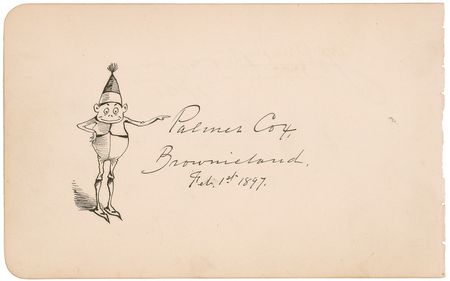 Palmer Cox,
Brownieland.
Feb. 1st 1897.